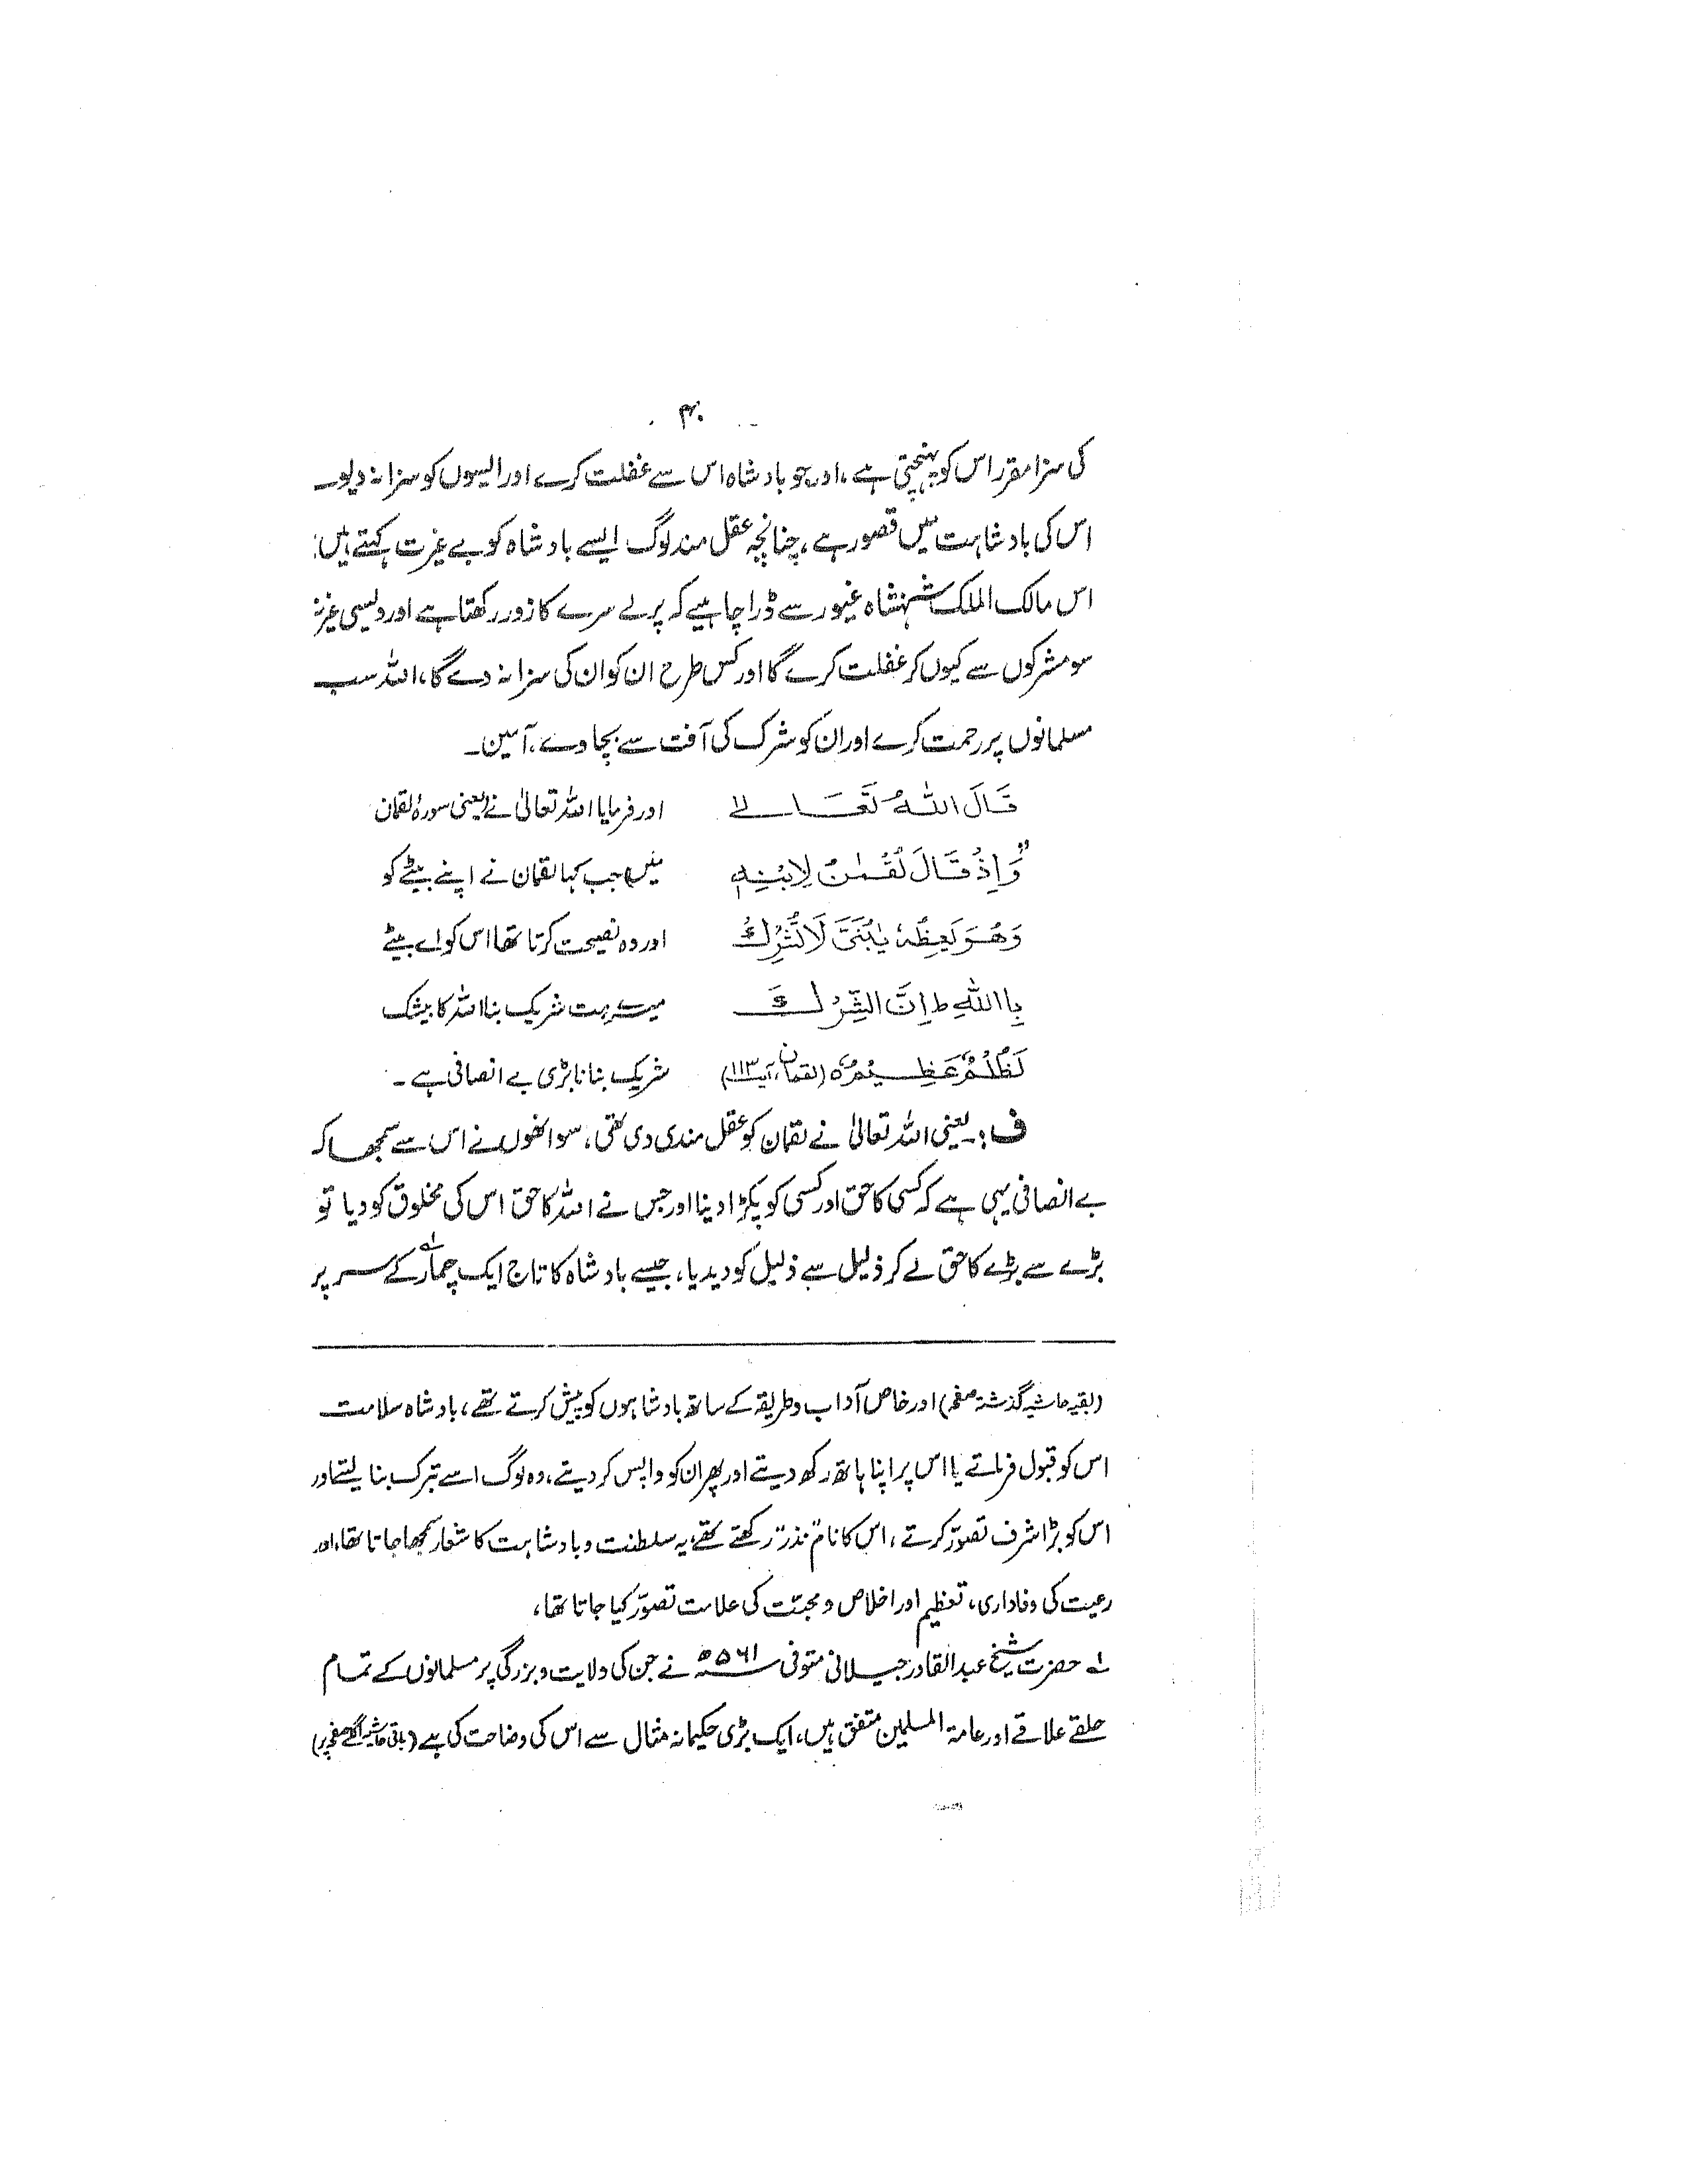 ۴۰
کی سزا مقرر اس کو پہنچتی ہے، اور جو بادشاہ اس سے غفلت کرے اور ایسوں کو سزا نہ دیوے
اس کی بادشاہت میں قصور ہے، چنانچہ عقل مند لوگ ایسے بادشاہ کو بے غیرت کہتے ہیں:
اس مالک الملک شہنشاہ غیور سے ڈرا چاہیے کہ پرلے سرے کا زور رکھتا ہے اور ویسی غیرت
سو مشرکوں سے کیوں کر غفلت کرے گا اور کس طرح ان کو ان کی سزا نہ دے گا، اللہ سب
مسلمانوں پر رحمت کرے اور ان کو شرک کی آفت سے بچاوے، آمین۔
قَالَ اللہُ تَعَالےٰ
"وَإِذْ قَالَ لُقْمٰنُ لِابْنِہٖ
وَهُوَ یَعِظُہٗ یٰبُنَیَّ لَا تُشْرِكْ
بِاللہِ ط اِنَّ الشِّرْكَ
لَظُلْمٌ عَظِیْمٌ ه (لقمان، آیت ۱۱۳)
اور فرمایا اللہ تعالیٰ نے (یعنی سورۂ لقمان
میں) جب کہا لقمان نے اپنے بیٹے کو
اور وہ نصیحت کرتا تھا اس کو اے بیٹے
میرے مت شریک بنا اللہ کا بیشک
شریک بنانا بڑی بے انصافی ہے۔
ف:۔ یعنی اللہ تعالیٰ نے لقمان کو عقل مندی دی تھی، سو انھوں نے اس سے سمجھا کہ
بے انصافی یہی ہے کہ کسی کا حق اور کسی کو پکڑا دینا اور جس نے اللہ کا حق اس کی مخلوق کو دیا تو
بڑے سے بڑے کا حق لے کر ذلیل سے ذلیل کو دیدیا، جیسے بادشاہ کا تاج ایک چمار کے سر پر
(بقیہ حاشیہ گذشتہ صفحہ) اور خاص آداب و طریقہ کے ساتھ بادشاہوں کو پیش کرتے تھے، بادشاہ سلامت
اس کو قبول فرماتے یا اس پر اپنا ہاتھ رکھ دیتے اور پھر ان کو واپس کر دیتے، وہ لوگ اسے تبرک بنا لیتے اور
اس کو بڑا شرف تصوّر کرتے، اس کا نام "نذر" رکھتے تھے، یہ سلطنت و بادشاہت کا شعار سمجھا جاتا تھا، اور
رعیت کی وفاداری، تعظیم اور اخلاص و محبّت کی علامت تصوّر کیا جاتا تھا،
لہ حضرت شیخ عبدالقادر جیلانی متوفی ۵۶۱ھ نے جن کی ولایت و بزرگی پر مسلمانوں کے تمام
حلقے علاقے اور عامۃ المسلمین متفق ہیں، ایک بڑی حکیمانہ مثال سے اس کی وضاحت کی ہے (باقی حاشیہ اگلے صفحہ پر)